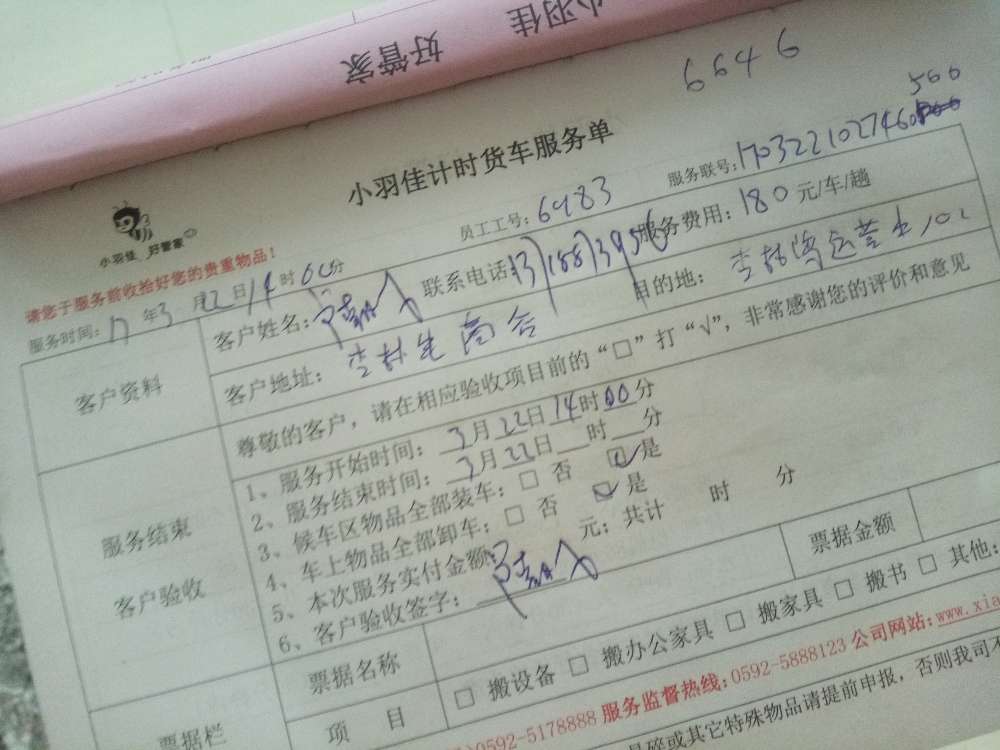 好管家 小羽佳
6646
500
小羽佳计时货车服务单
小羽佳 好管家
员工工号：6983 服务联号：170322102746
请您于服务前收拾好您的贵重物品！
服务时间：17年3月22日14时00分
客户资料
客户姓名： 联系电话： 服务费用：180元/车/趟
客户地址： 目的地：
尊敬的客户，请在相应验收项目前的“□”打“√”，非常感谢您的评价和意见
服务结束
客户验收
1、服务开始时间：3月22日14时00分
2、服务结束时间：3月22日 时 分
3、候车区物品全部装车：□ 否 □ 是
4、车上物品全部卸车：□ 否 □ 是
5、本次服务实付金额： 元；共计 时 分
6、客户验收签字：
票据栏
票据名称 票据金额
项 目 □ 搬设备 □ 搬办公家具 □ 搬家具 □ 搬书 □ 其他：
)0592-5178888 服务监督热线：0592-5888123 公司网站：www.xia
易碎或其它特殊物品请提前申报，否则我司不